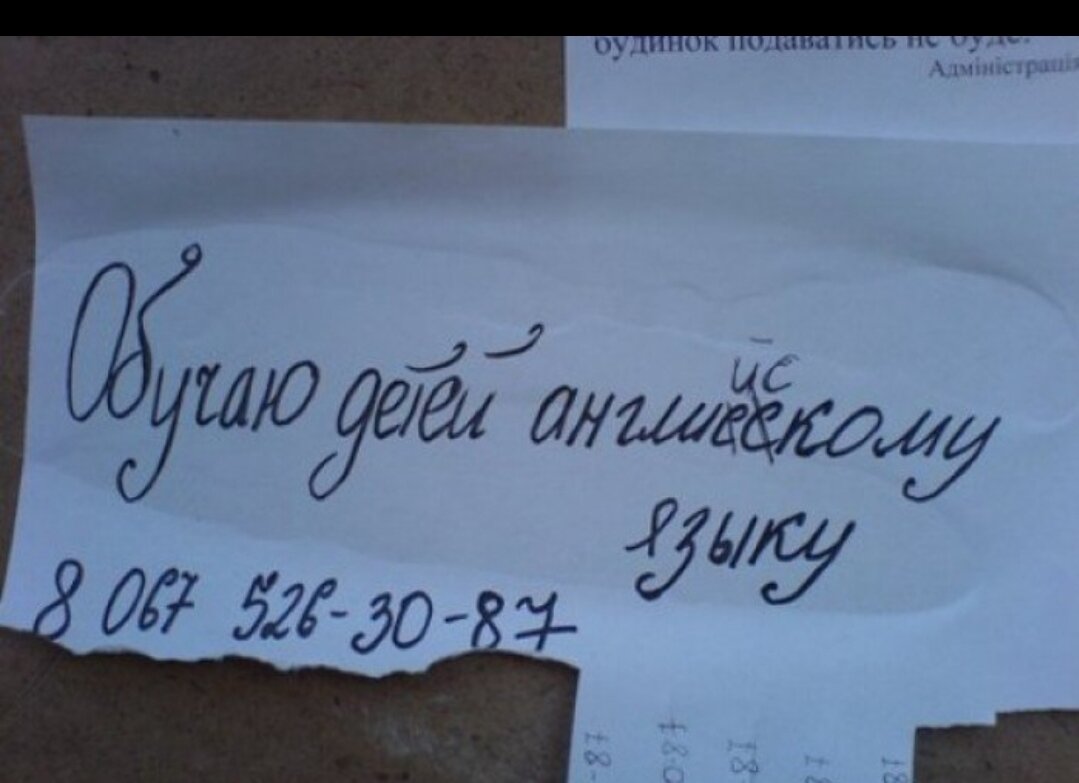 будинок подаватись не буде.
Адміністрація
Обучаю детей английскому
языку
8 067 526-30-87